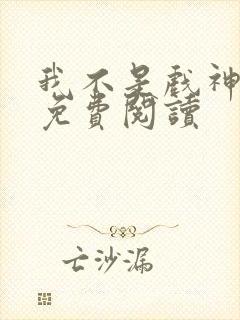 我不是戏神
免費閱讀
亡沙漏